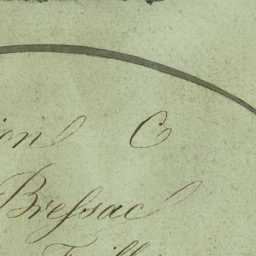 ion C
Bressac